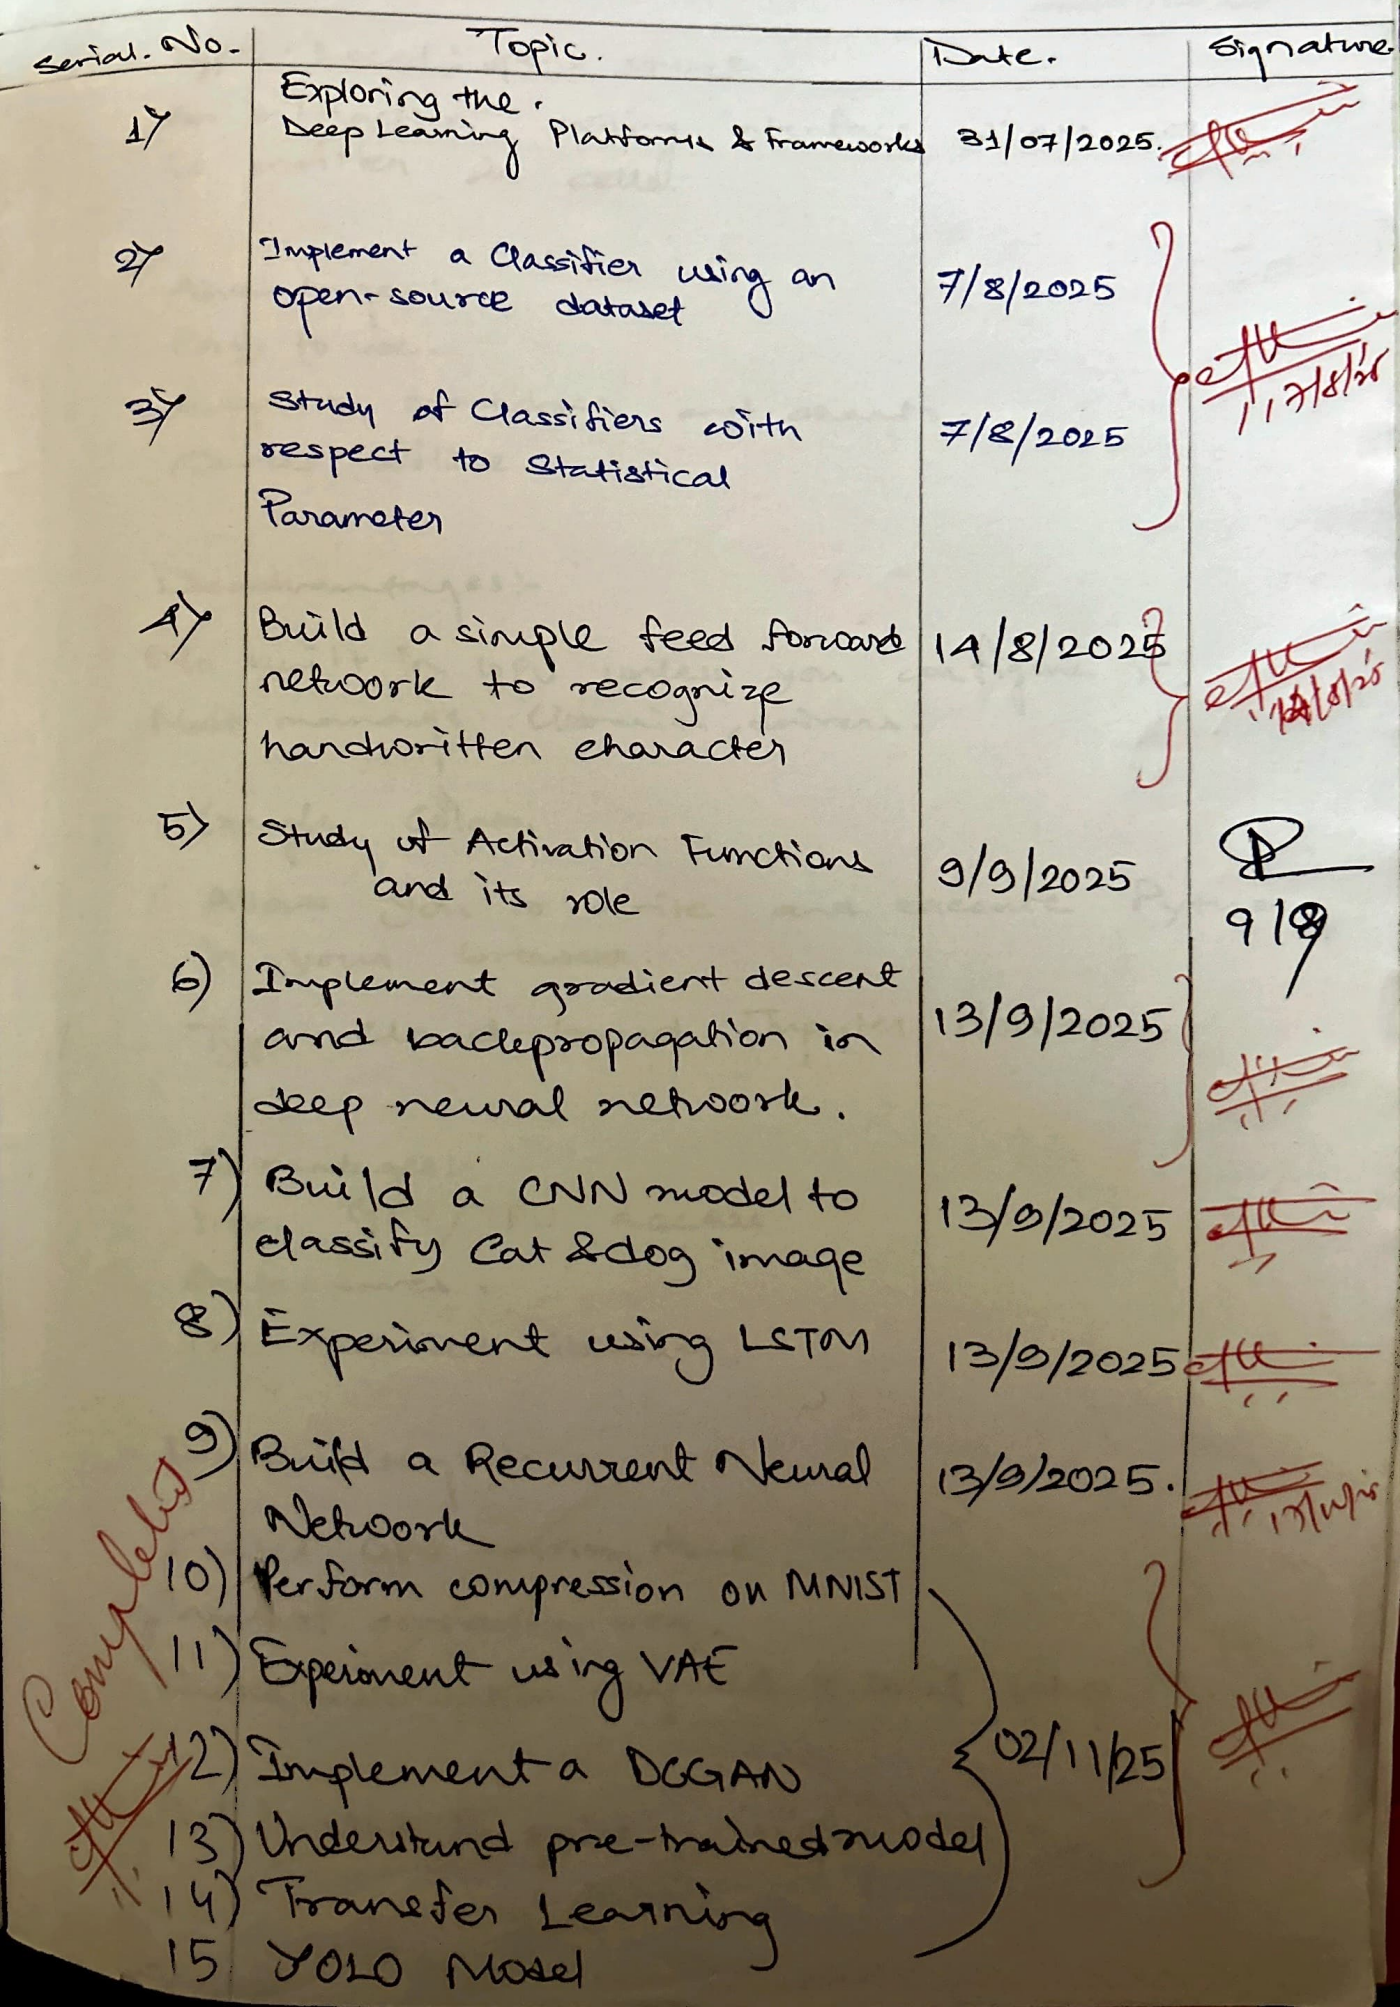 Serial. No. Topic. Date. Signature
Exploring the.
1) Deep Learning Platforms & Frameworks 31/07/2025.
2) Implement a Classifier using an
open-source dataset 7/8/2025
7/8/25
3) Study of Classifiers with
respect to Statistical 7/8/2025
Parameter
4) Build a simple feed forward 14/8/2025
network to recognize
14/8/25
handwritten character
5) Study of Activation Functions
and its role 9/9/2025
9/9
6) Implement gradient descent
and backpropagation in 13/9/2025
deep neural network.
7) Build a CNN model to 13/9/2025
classify Cat & dog image
8) Experiment using LSTM 13/9/2025
9) Build a Recurrent Neural 13/9/2025.
Network
Completed
10) Perform compression on MNIST
11) Experiment using VAE
12) Implement a DCGAN 02/11/25
13) Understand pre-trained model
14) Transfer Learning
15 YOLO Model